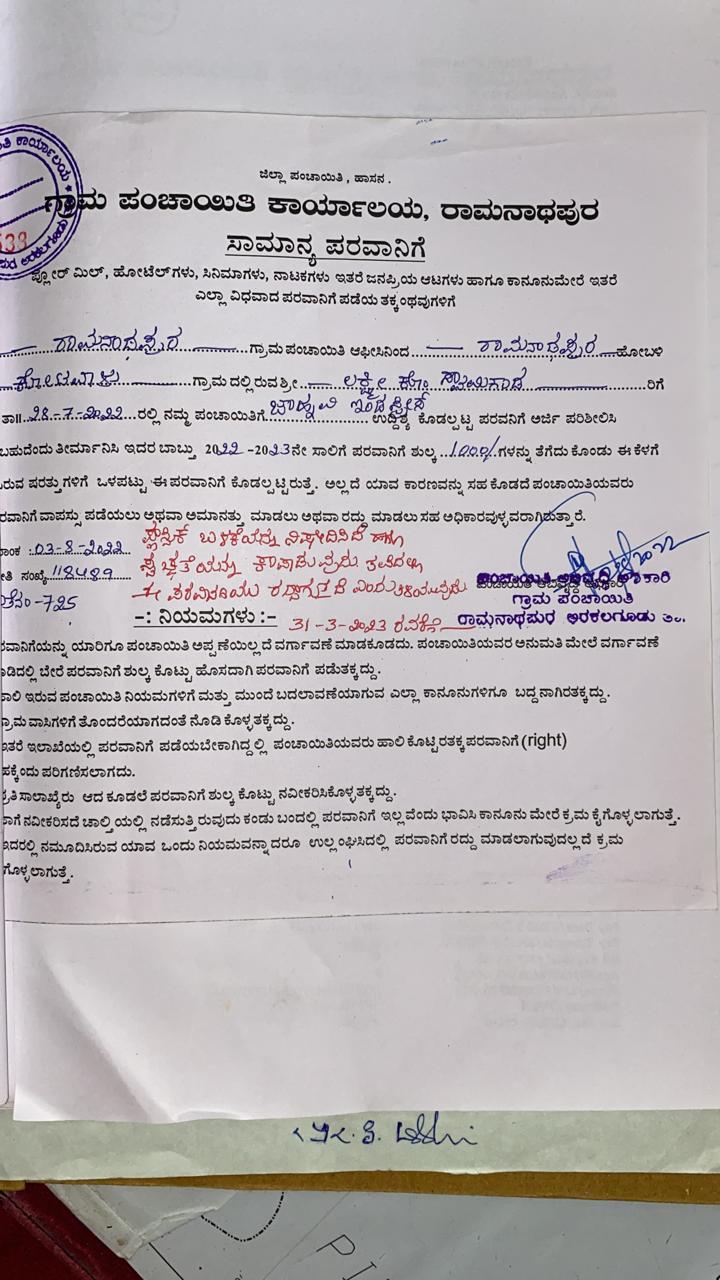 ಜಿಲ್ಲಾ ಪಂಚಾಯಿತಿ, ಹಾಸನ.
ಗ್ರಾಮ ಪಂಚಾಯಿತಿ ಕಾರ್ಯಾಲಯ, ರಾಮನಾಥಪುರ
ಸಾಮಾನ್ಯ ಪರವಾನಿಗೆ
ಪ್ಲೋರ್ ಮಿಲ್, ಹೋಟೆಲ್‌ಗಳು, ಸಿನಿಮಾಗಳು, ನಾಟಕಗಳು ಇತರೆ ಜನಪ್ರಿಯ ಆಟಗಳು ಹಾಗೂ ಕಾನೂನುಮೇರೆ ಇತರೆ
ಎಲ್ಲಾ ವಿಧವಾದ ಪರವಾನಿಗೆ ಪಡೆಯ ತಕ್ಕಂಥವುಗಳಿಗೆ
ರಾಮನಾಥಪುರ ಗ್ರಾಮ ಪಂಚಾಯಿತಿ ಆಫೀಸಿನಿಂದ ರಾಮನಾಥಪುರ ಹೋಬಳಿ
ಗ್ರಾಮದಲ್ಲಿರುವ ಶ್ರೀ ಲಕ್ಷ್ಮೀ ಕೋಂ ರಿಗೆ
ತಾ|| 28-7-2022 ರಲ್ಲಿ ನಮ್ಮ ಪಂಚಾಯಿತಿಗೆ ಉದ್ದಿಶ್ಯ ಕೊಡಲ್ಪಟ್ಟ ಪರವನಿಗೆ ಅರ್ಜಿ ಪರಿಶೀಲಿಸಿ
ಬಹುದೆಂದು ತೀರ್ಮಾನಿಸಿ ಇದರ ಬಾಬ್ತು 2022-2023ನೇ ಸಾಲಿಗೆ ಪರವಾನಿಗೆ ಶುಲ್ಕ 1000/ ಗಳನ್ನು ತೆಗೆದುಕೊಂಡು ಈ ಕೆಳಗೆ
ರುವ ಷರತ್ತುಗಳಿಗೆ ಒಳಪಟ್ಟು ಈ ಪರವಾನಿಗೆ ಕೊಡಲ್ಪಟ್ಟಿರುತ್ತೆ. ಅಲ್ಲದೆ ಯಾವ ಕಾರಣವನ್ನು ಸಹ ಕೊಡದೆ ಪಂಚಾಯಿತಿಯವರು
ರವಾನಿಗೆ ವಾಪಸ್ಸು ಪಡೆಯಲು ಅಥವಾ ಅಮಾನತ್ತು ಮಾಡಲು ಅಥವಾ ರದ್ದು ಮಾಡಲು ಸಹ ಅಧಿಕಾರವುಳ್ಳವರಾಗಿರುತ್ತಾರೆ.
ಾಂಕ :03-8-2022 ಪ್ಲಾಸ್ಟಿಕ್ ಬಳಕೆಯನ್ನು ನಿಷೇಧಿಸಿದೆ ಹಾಗೂ
ೀತಿ ಸಂಖ್ಯೆ 118489 ಸ್ವಚ್ಛತೆಯನ್ನು ಕಾಪಾಡುವುದು ತಪ್ಪಿದಲ್ಲಿ
ಪಂಚಾಯಿತಿ ಅಭಿವೃದ್ಧಿ ಅಧಿಕಾರಿ
ಗ್ರಾಮ ಪಂಚಾಯಿತಿ
-725
-: ನಿಯಮಗಳು :- 31-3-2023 ರಾಮನಾಥಪುರ ಅರಕಲಗೂಡು ತಾ.
ರವಾನಿಗೆಯನ್ನು ಯಾರಿಗೂ ಪಂಚಾಯಿತಿ ಅಪ್ಪಣೆಯಿಲ್ಲದೆ ವರ್ಗಾವಣೆ ಮಾಡಕೂಡದು. ಪಂಚಾಯಿತಿಯವರ ಅನುಮತಿ ಮೇಲೆ ವರ್ಗಾವಣೆ
ಾಡಿದಲ್ಲಿ ಬೇರೆ ಪರವಾನಿಗೆ ಶುಲ್ಕ ಕೊಟ್ಟು ಹೊಸದಾಗಿ ಪರವಾನಿಗೆ ಪಡತಕ್ಕದ್ದು.
ಾಲಿ ಇರುವ ಪಂಚಾಯಿತಿ ನಿಯಮಗಳಿಗೆ ಮತ್ತು ಮುಂದೆ ಬದಲಾವಣೆಯಾಗುವ ಎಲ್ಲಾ ಕಾನೂನುಗಳಿಗೂ ಬದ್ದನಾಗಿರತಕ್ಕದ್ದು.
ಗ್ರಾಮ ವಾಸಿಗಳಿಗೆ ತೊಂದರೆಯಾಗದಂತೆ ನೊಡಿ ಕೊಳ್ಳತಕ್ಕದ್ದು.
ಇತರೆ ಇಲಾಖೆಯಲ್ಲಿ ಪರವಾನಿಗೆ ಪಡೆಯಬೇಕಾಗಿದ್ದಲ್ಲಿ ಪಂಚಾಯಿತಿಯವರು ಹಾಲಿ ಕೊಟ್ಟಿರತಕ್ಕ ಪರವಾನಿಗೆ (right)
ಹಕ್ಕೆಂದು ಪರಿಗಣಿಸಲಾಗದು.
ಪ್ರತಿಸಾಲಾಖೈರು ಆದ ಕೂಡಲೆ ಪರವಾನಿಗೆ ಶುಲ್ಕ ಕೊಟ್ಟು ನವೀಕರಿಸಿಕೊಳ್ಳತಕ್ಕದ್ದು.
ಾಗೆ ನವೀಕರಿಸದೆ ಚಾಲ್ತಿಯಲ್ಲಿ ನಡೆಸುತ್ತಿರುವುದು ಕಂಡು ಬಂದಲ್ಲಿ ಪರವಾನಿಗೆ ಇಲ್ಲವೆಂದು ಭಾವಿಸಿ ಕಾನೂನು ಮೇರೆ ಕ್ರಮ ಕೈಗೊಳ್ಳಲಾಗುತ್ತೆ.
ಇದರಲ್ಲಿ ನಮೂದಿಸಿರುವ ಯಾವ ಒಂದು ನಿಯಮವನ್ನಾದರೂ ಉಲ್ಲಂಘಿಸಿದಲ್ಲಿ ಪರವಾನಿಗೆ ರದ್ದು ಮಾಡಲಾಗುವುದಲ್ಲದೆ ಕ್ರಮ
ಗೊಳ್ಳಲಾಗುತ್ತೆ.